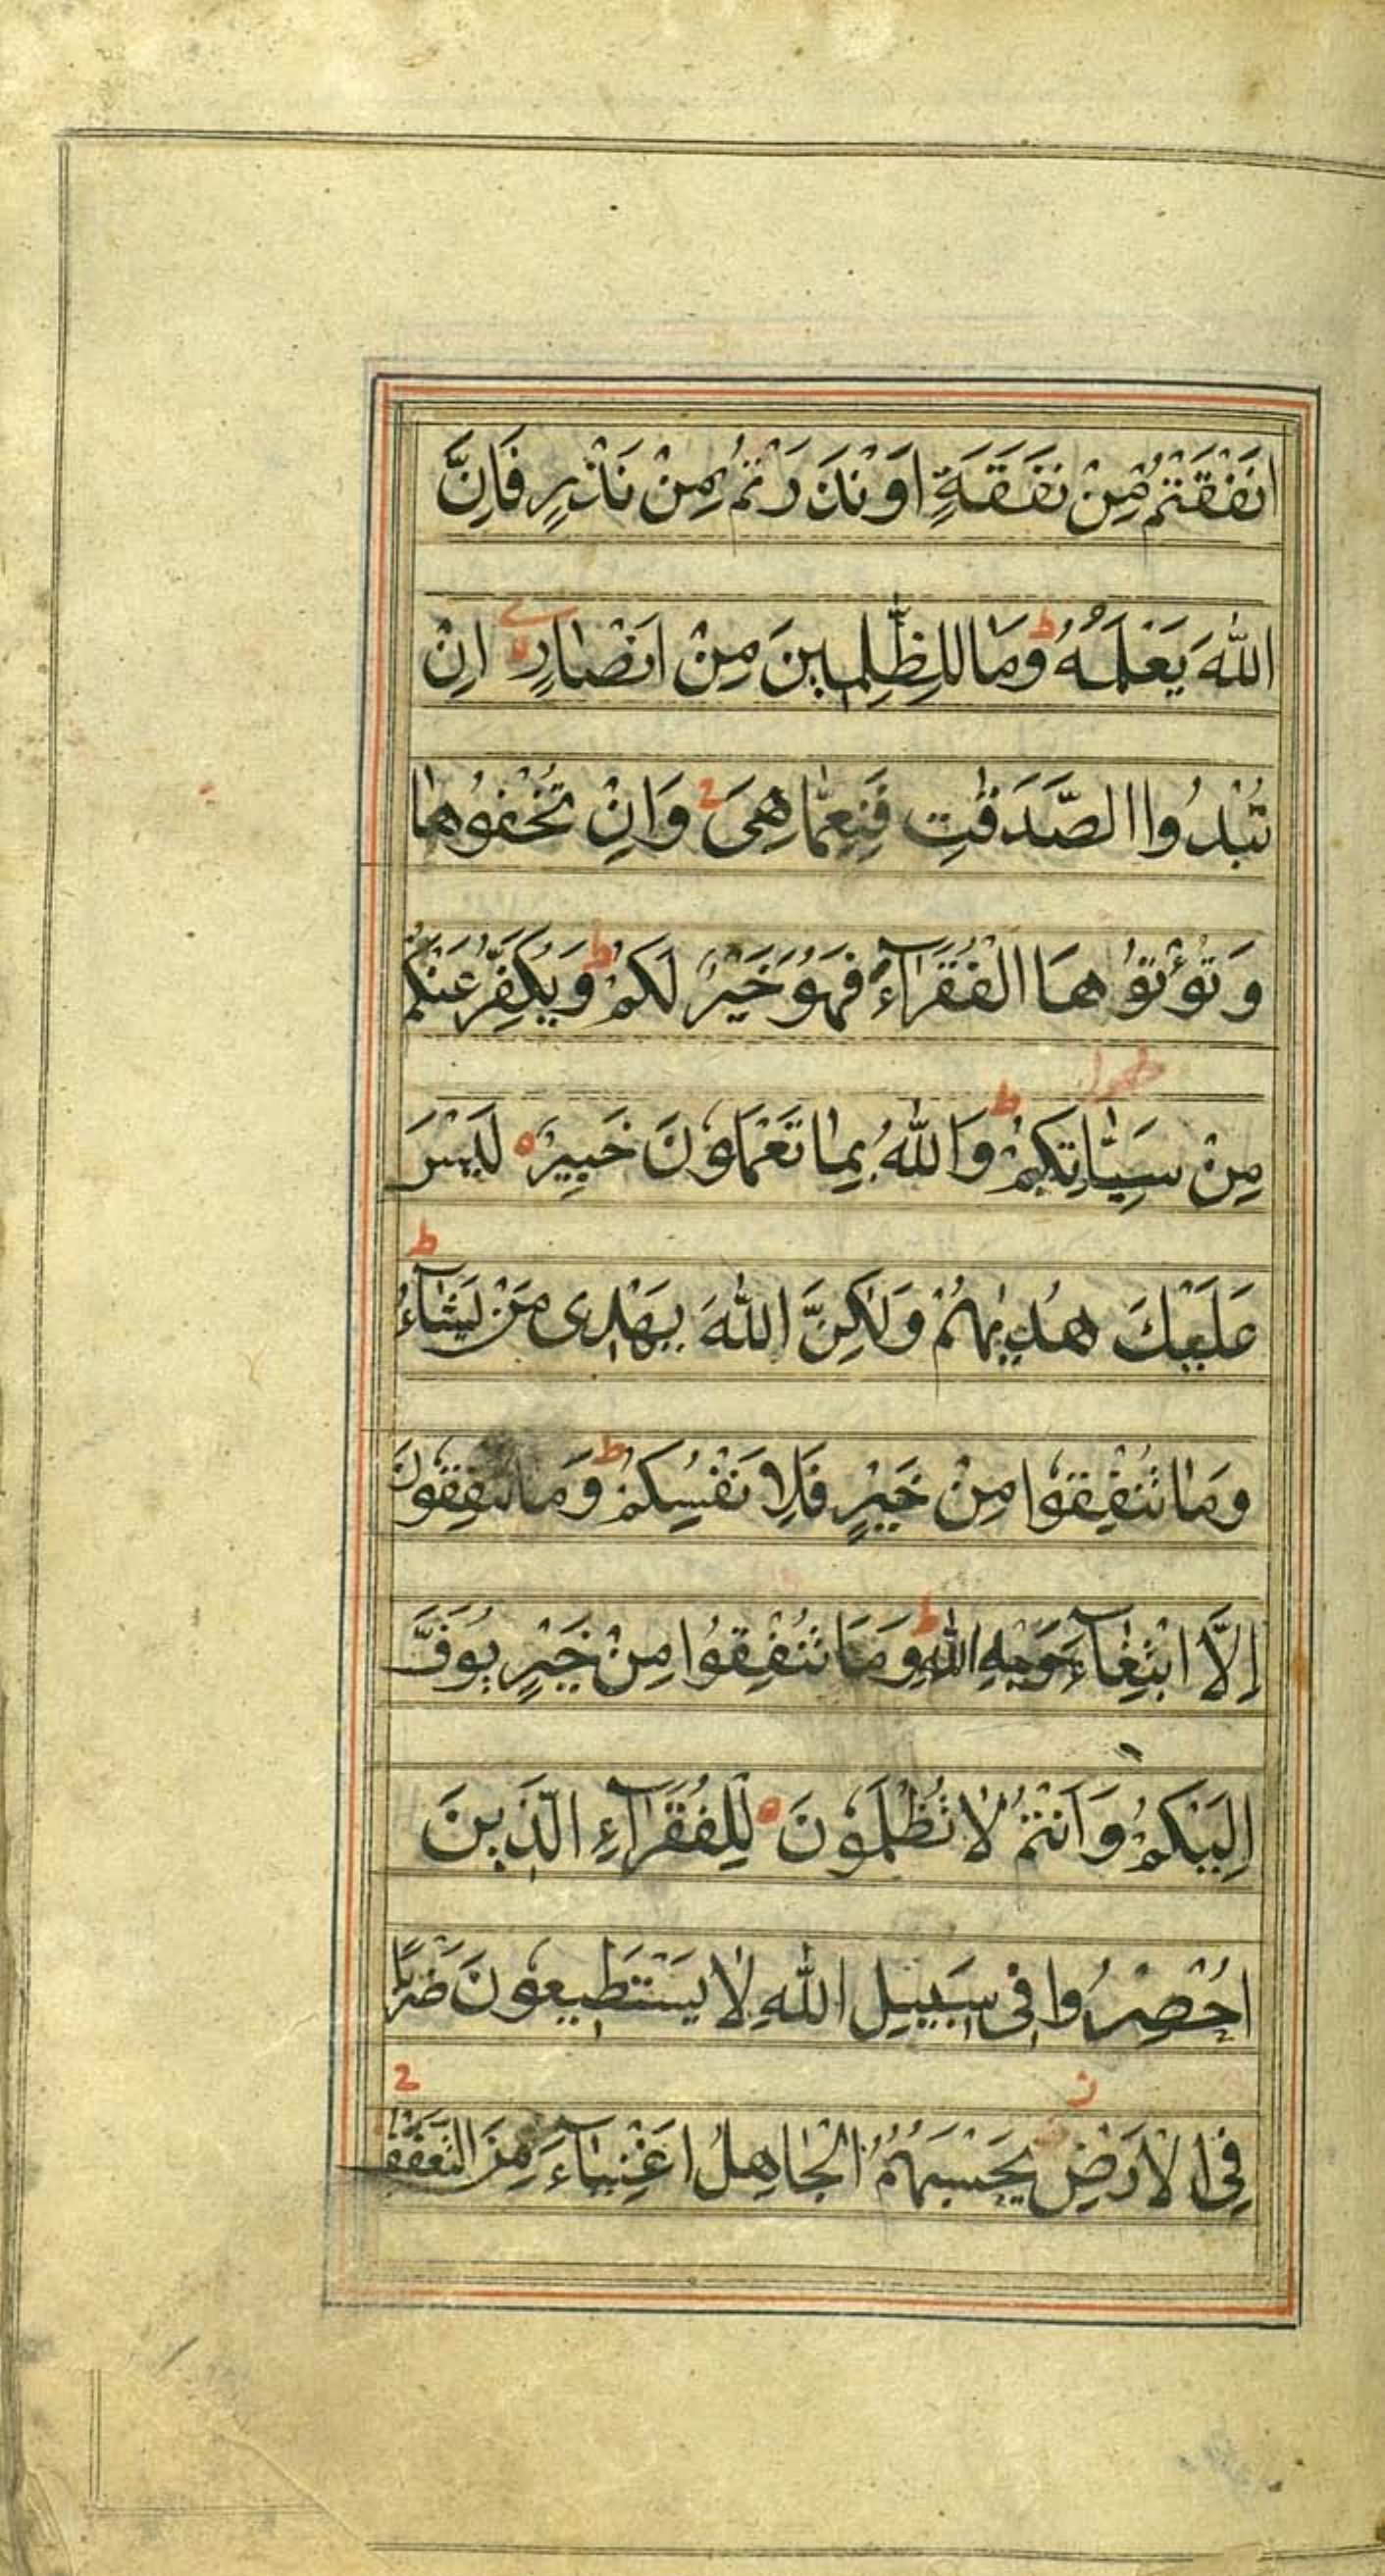 اَنْفَقْتُمْ مِنْ نَفَقَةٍ اَوْ نَذَرْتُمْ مِنْ نَذْرٍ فَاِنَّ
اللّٰهَ يَعْلَمُهُ ط وَمَا لِلظّٰلِمِينَ مِنْ اَنْصَارٍ اِنْ
تُبْدُوا الصَّدَقٰتِ فَنِعِمَّا هِىَ ح وَاِنْ تُخْفُوهَا
وَتُؤْتُوْهَا الْفُقَرَآءَ فَهُوَ خَيْرٌ لَكُمْ ط وَيُكَفِّرُ عَنْكُمْ
مِنْ سَيِّاٰتِكُمْ ط وَاللّٰهُ بِمَا تَعْمَلُونَ خَبِيرٌ ه لَيْسَ
عَلَيْكَ هُدٰيهُمْ وَلٰكِنَّ اللّٰهَ يَهْدِى مَنْ يَشَآءُ ط
وَمَا تُنْفِقُوْا مِنْ خَيْرٍ فَلِاَنْفُسِكُمْ ط وَمَا تُنْفِقُونَ
اِلَّا ابْتِغَآءَ وَجْهِ اللّٰهِ ط وَمَا تُنْفِقُوا مِنْ خَيْرٍ يُوَفَّ
اِلَيْكُمْ وَاَنْتُمْ لَا تُظْلَمُونَ ه لِلْفُقَرَآءِ الَّذِينَ
اُحْصِرُوا فِى سَبِيلِ اللّٰهِ لَا يَسْتَطِيعُونَ ضَرْبًا
فِى الْاَرْضِ ز يَحْسَبُهُمُ الْجَاهِلُ اَغْنِيَآءَ مِنَ التَّعَفُّفِ ح